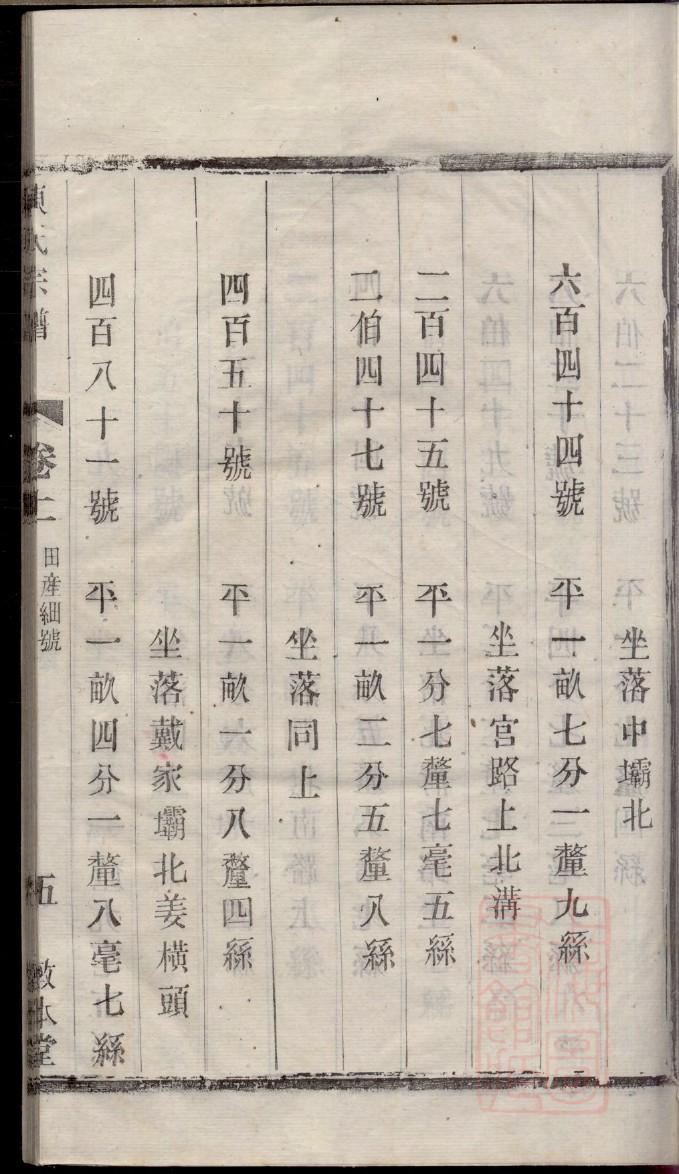 坐落中壩北
六百四十四號　平一畝七分一釐九絲
坐落官路上北溝
二百四十五號　平一分七釐七毫五絲
二伯四十七號　平一畝二分五釐八絲
坐落同上
四百五十號　平一畝一分八釐四絲
坐落戴家壩北姜橫頭
四百八十一號　平一畝四分一釐八毫七絲
氏宗譜　卷二　田產細號　五　敦本堂